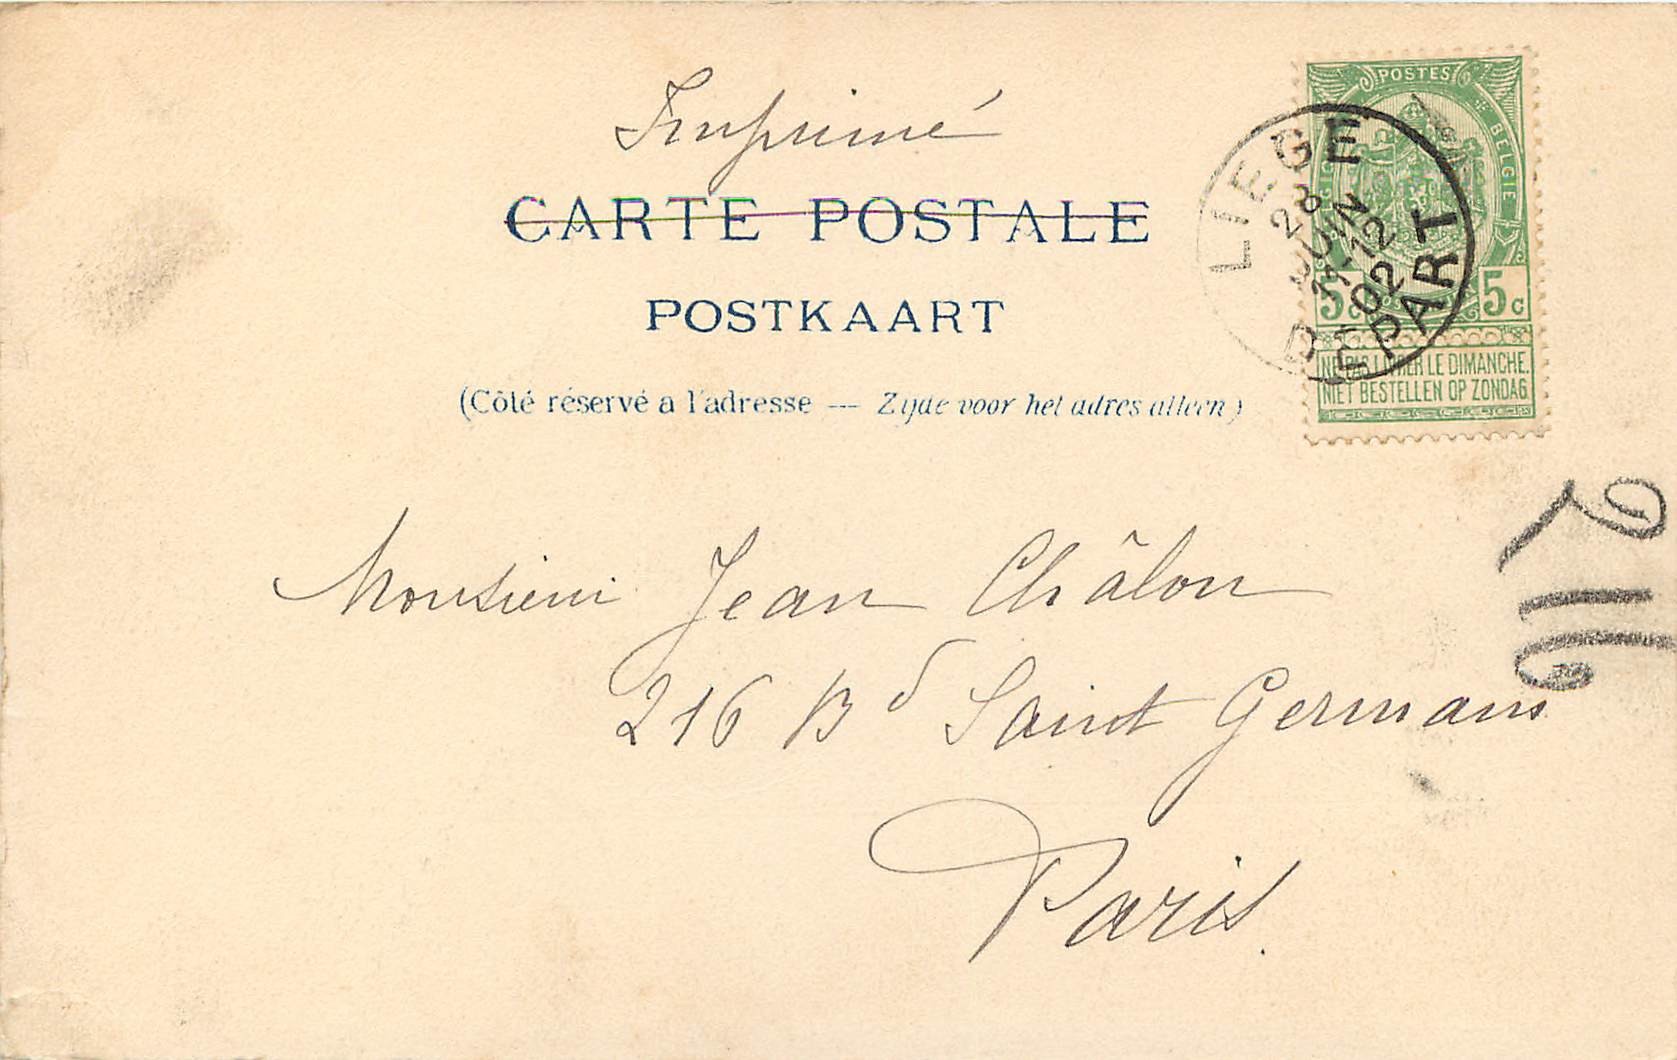 Imprimé
CARTE POSTALE
POSTKAART
(Côté réservé a l'adresse — Zijde voor het adres alleen)
POSTES
BELGIE
5c 5c
NE PAS LIVRER LE DIMANCHE.
NIET BESTELLEN OP ZONDAG
LIEGE
28 JUIN
11-12
02
DEPART
Monsieur Jean Châlon
216 Bd Saint Germans
Paris.